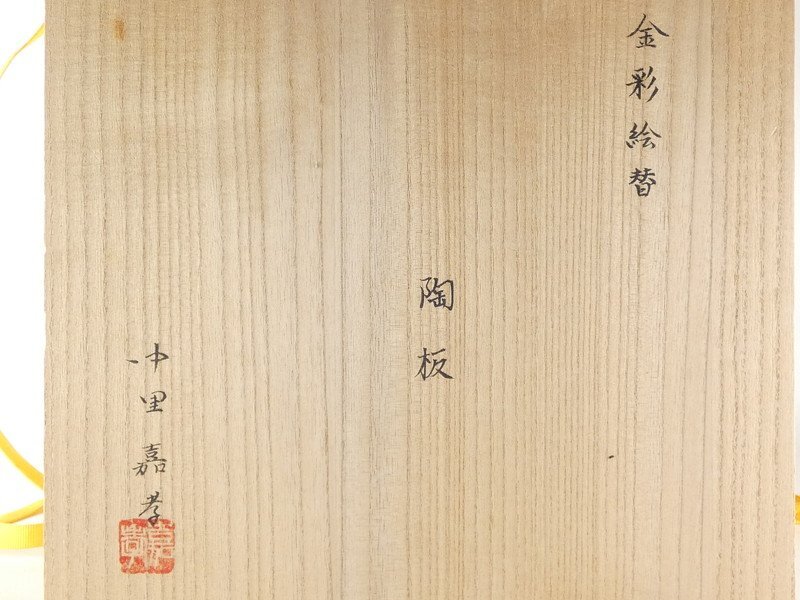 金彩絵替
陶板
中里嘉孝